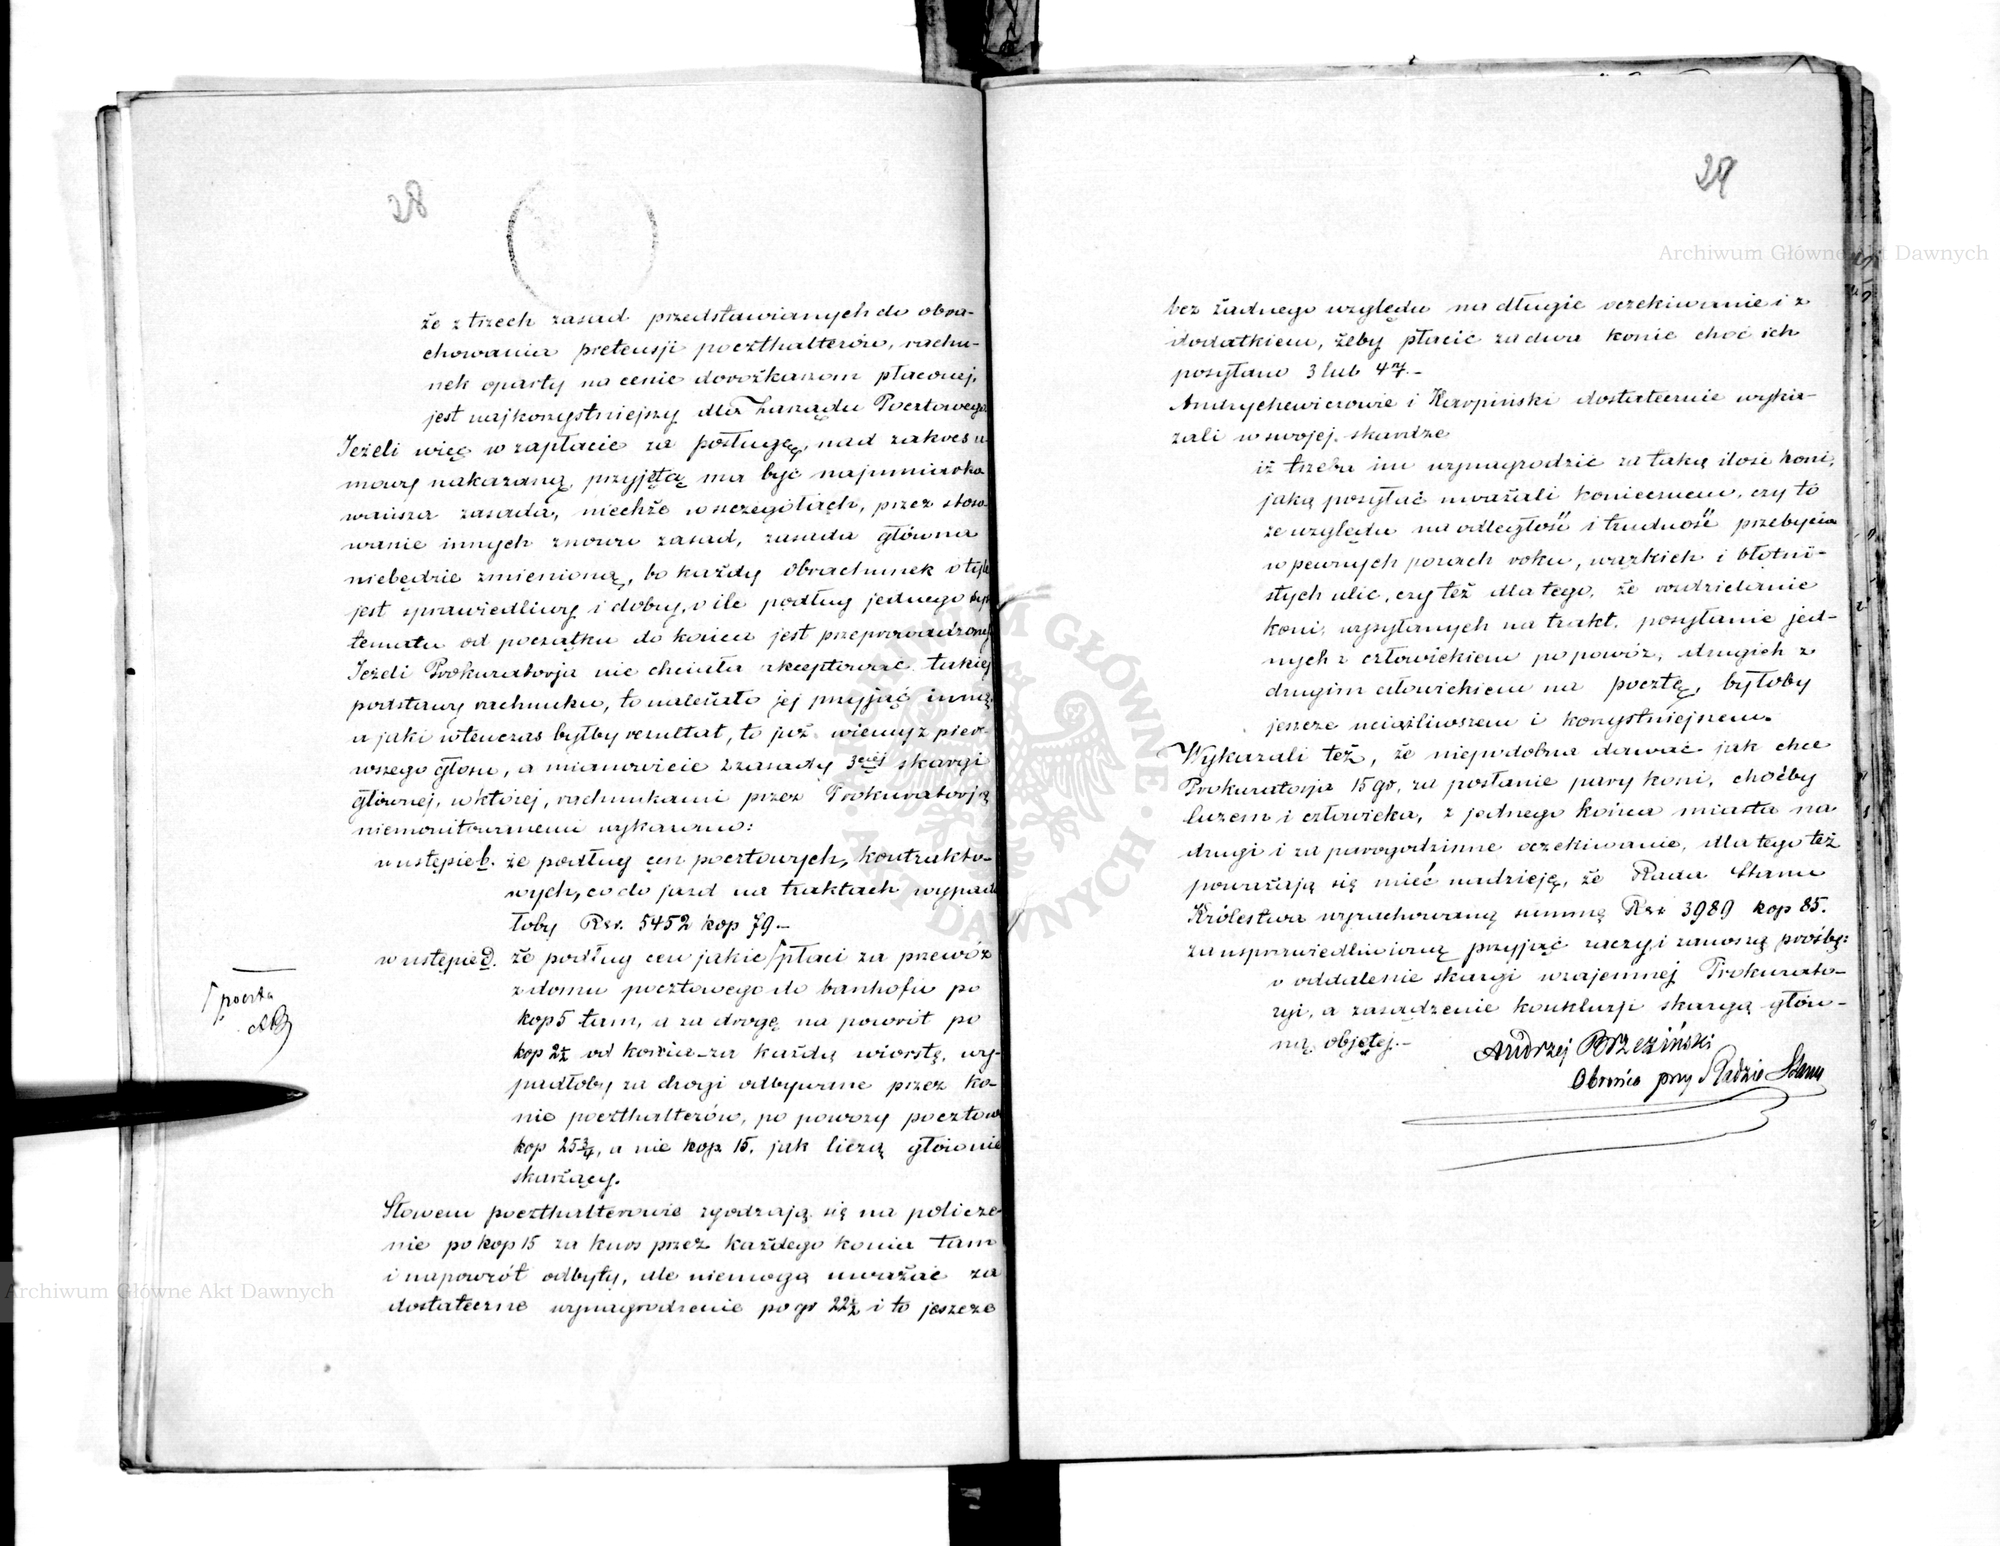 28
że z trzech zasad przedstawianych do obra-
chowania pretensji poczthalterów, rachu-
nek oparty na cenie dorożkarzom płaconej,
jest najkorzystniejszy dla Zarządu Pocztowego
Jeżeli więc w zapłacie za posługę, nad zakres u
mowy nakazaną, przyjętą ma być najumiarko
wańsza zasada, niechże w szczegółach, przez stoso-
wanie innych znowu zasad, zasada główna
niebędzie zmienioną, bo każdy obrachunek o tyle
jest sprawiedliwy i dobry, o ile podług jednego sys
tematu od początku do końca jest przeprowadzony
Jeżeli Prokuratorja nie chciała akceptować takiej
podstawy rachunku, to należało jej przyjąć inną,
a jaki wtenczas byłby rezultat, to już wiemy z pier-
wszego głosu, a mianowicie z zasady 3ciej skargi
głównej, w której, rachunkami przez Prokuratorją
niemonitowanemi wykazano:
w ustępie b. że podług cen pocztowych, kontrakto-
wych, co do jazd na traktach wypad
łoby Rsr. 5452 kop 79.-
w ustępie d. że podług cen jakie ⌈ płaci za przewóz
z domu pocztowego do banhofu po
kop 5 tam, a za drogę na powrót po
kop 2½ od konia za każdą wiorstę, wy-
padłoby za drogi odbywane przez ko-
nie poczthalterów, po powozy pocztow
kop 25¾, a nie kop. 15. jak liczą głównie
skarżący.
⌈ poczta
AB
Słowem poczthalterowie zgodzają się na policze-
nie po kop 15 za kurs przez każdego konia tam
i napowrót odbyty, ale niemogą uważać za
dostateczne wynagrodzenie po gr 22½ i to jeszcze
29
bez żadnego względu na długie oczekiwanie i z
dodatkiem, żeby płacić za dwa konie choć ich
posyłano 3 lub 4ry.-
Andrychewiczowie i Karpiński dostatecznie wyka-
zali w swojej skardze
iż trzeba im wynagrodzić za taką ilość koni,
jaką posyłać uważali koniecznem, czy to
ze względu na odległość i trudność przebycia
w pewnych porach roku, wązkich i błotni-
stych ulic, czy też dla tego, że rozdzielanie
koni, wysyłanych na trakt, posyłanie jed-
nych z człowiekiem po powóz, drugich z
drugim człowiekiem na pocztę, byłoby
jeszcze uciążliwszem i kosztniejszem.
Wykazali też, że niepodobna dawać jak chce
Prokuratorja 15 gr, za posłanie pary koni, choćby
luzem i człowieka, z jednego końca miasta na
drugi i za parogodzinne oczekiwanie, dla tego też
poważają się mieć nadzieję, że Rada Stanu
Królestwa wyrachowaną summę Rsr 3989 kop 85.
za usprawiedliwioną przyjąć raczy i zanoszą prośbę:
o oddalenie skargi wzajemnej Prokurato-
ryi, a zasądzenie konkluzji skargą głów-
ną objętej.-
Andrzej Brzeziński
Obrońca przy Radzie Stanu